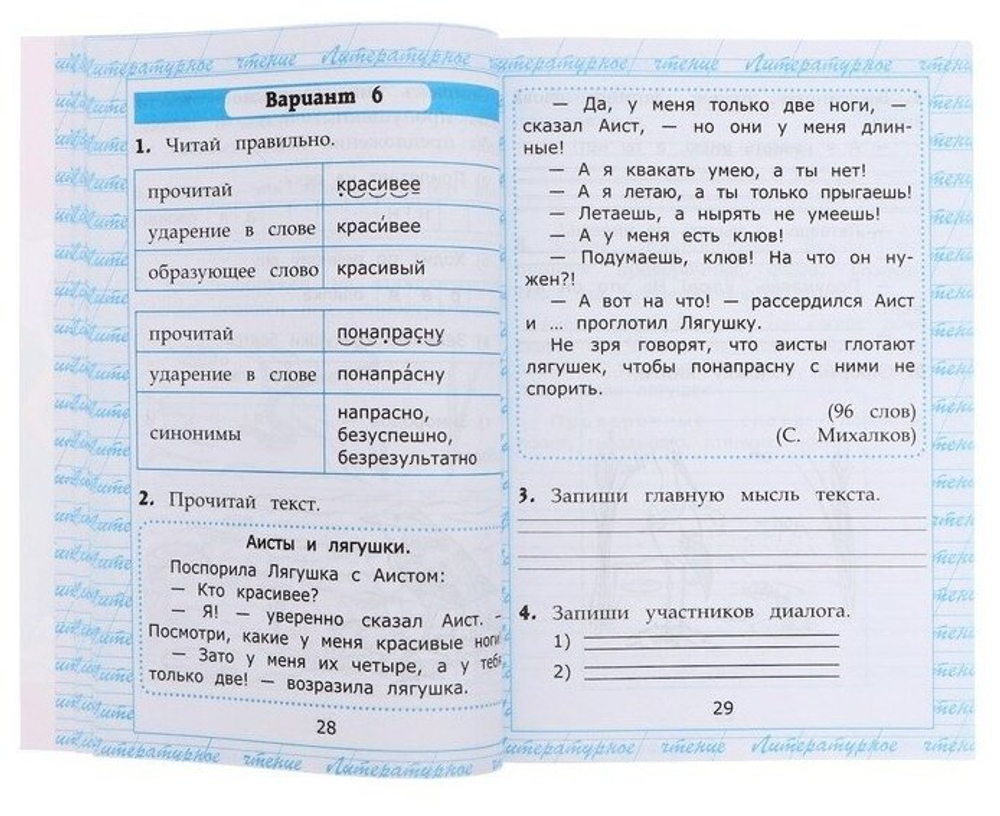 Литературное чтение Литературное
Вариант 6
1. Читай правильно.
прочитай красивее
ударение в слове краси́вее
образующее слово красивый
прочитай понапрасну
ударение в слове понапра́сну
синонимы напрасно,
безуспешно,
безрезультатно
2. Прочитай текст.
Аисты и лягушки.
Поспорила Лягушка с Аистом:
— Кто красивее?
— Я! — уверенно сказал Аист. –
Посмотри, какие у меня красивые ноги
— Зато у меня их четыре, а у тебя
только две! — возразила лягушка.
28
Литературное чтение Литературное
Литературное чтение Литературное чтение
— Да, у меня только две ноги, —
сказал Аист, — но они у меня длин-
ные!
— А я квакать умею, а ты нет!
— А я летаю, а ты только прыгаешь!
— Летаешь, а нырять не умеешь!
— А у меня есть клюв!
— Подумаешь, клюв! На что он ну-
жен?!
— А вот на что! — рассердился Аист
и ... проглотил Лягушку.
Не зря говорят, что аисты глотают
лягушек, чтобы понапрасну с ними не
спорить.
(96 слов)
(С. Михалков)
3. Запиши главную мысль текста.
4. Запиши участников диалога.
1)
2)
29
Литературное чтение Литературное чтение